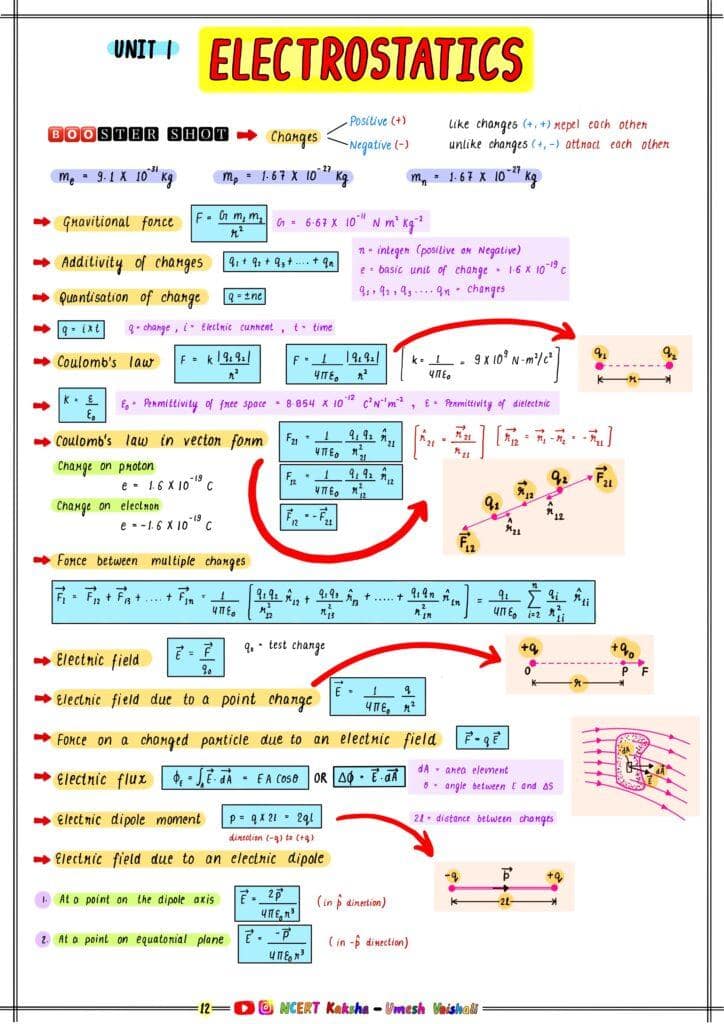 UNIT 1 ELECTROSTATICS
BOOSTER SHOT → Charges
Positive (+)
Negative (-)
like charges (+, +) repel each other
unlike charges (+, -) attract each other
mₑ = 9.1 X 10⁻³¹ kg
mₚ = 1.67 X 10⁻²⁷ kg
mₙ = 1.67 X 10⁻²⁷ kg
→ Gravitional force F = G m₁ m₂ / r² G = 6.67 X 10⁻¹¹ N m² Kg⁻²
→ Additivity of charges q₁ + q₂ + q₃ + .... + qₙ
n = integer (positive or Negative)
e = basic unit of charge = 1.6 X 10⁻¹⁹ C
q₁, q₂, q₃ .... qₙ = charges
→ Quantisation of charge q = ±ne
→ q = i x t q = charge , i = Electric current , t = time
→ Coulomb's law F = k |q₁q₂| / r² F = 1/4πε₀ |q₁q₂| / r² [k = 1/4πε₀ = 9 X 10⁹ N-m²/c²]
q₁ q₂
r
→ k = ε/ε₀ ε₀ = Permittivity of free space = 8.854 X 10⁻¹² C²N⁻¹m⁻² , ε = Permittivity of dielectric
→ Coulomb's law in vector form F₂₁ = 1/4πε₀ q₁q₂/r²₂₁ r̂₂₁ [r̂₂₁ = r⃗₂₁/r₂₁] [r⃗₁₂ = r⃗₁ - r⃗₂ = - r⃗₂₁]
Charge on proton
e = 1.6 X 10⁻¹⁹ C
F₁₂ = 1/4πε₀ q₁q₂/r²₁₂ r̂₁₂
Charge on electron
e = -1.6 X 10⁻¹⁹ C
F⃗₁₂ = -F⃗₂₁
F⃗₂₁
q₂
r⃗₁₂
q₁
r̂₁₂
r̂₂₁
F⃗₁₂
→ Force between multiple charges
F⃗₁ = F⃗₁₂ + F⃗₁₃ + .... + F⃗₁ₙ = 1/4πε₀ [q₁q₂/r²₁₂ r̂₁₂ + q₁q₃/r²₁₃ r̂₁₃ + ..... + q₁qₙ/r²₁ₙ r̂₁ₙ] = q₁/4πε₀ Σⁿᵢ₌₂ qᵢ/r²₁ᵢ r̂₁ᵢ
→ Electric field E⃗ = F⃗/q₀ q₀ = test charge
+q +q₀
O P F
r
→ Electric field due to a point charge E⃗ = 1/4πε₀ q/r²
→ Force on a charged particle due to an electric field F⃗ = qE⃗
→ Electric flux ϕE = ∫A E⃗.dA⃗ = EA Cosθ OR Δϕ = E⃗.dA⃗
dA = area element
θ = angle between E and ΔS
dA dA⃗
E⃗
→ Electric dipole moment p = q X 2l = 2ql
direction (-q) to (+q)
2l = distance between charges
→ Electric field due to an electric dipole
-q p⃗ +q
2l
1. At a point on the dipole axis E⃗ = 2p⃗/4πε₀r³ (in p̂ direction)
2. At a point on equatorial plane E⃗ = -p⃗/4πε₀r³ (in -p̂ direction)
12 NCERT Kaksha - Umesh Vaishali